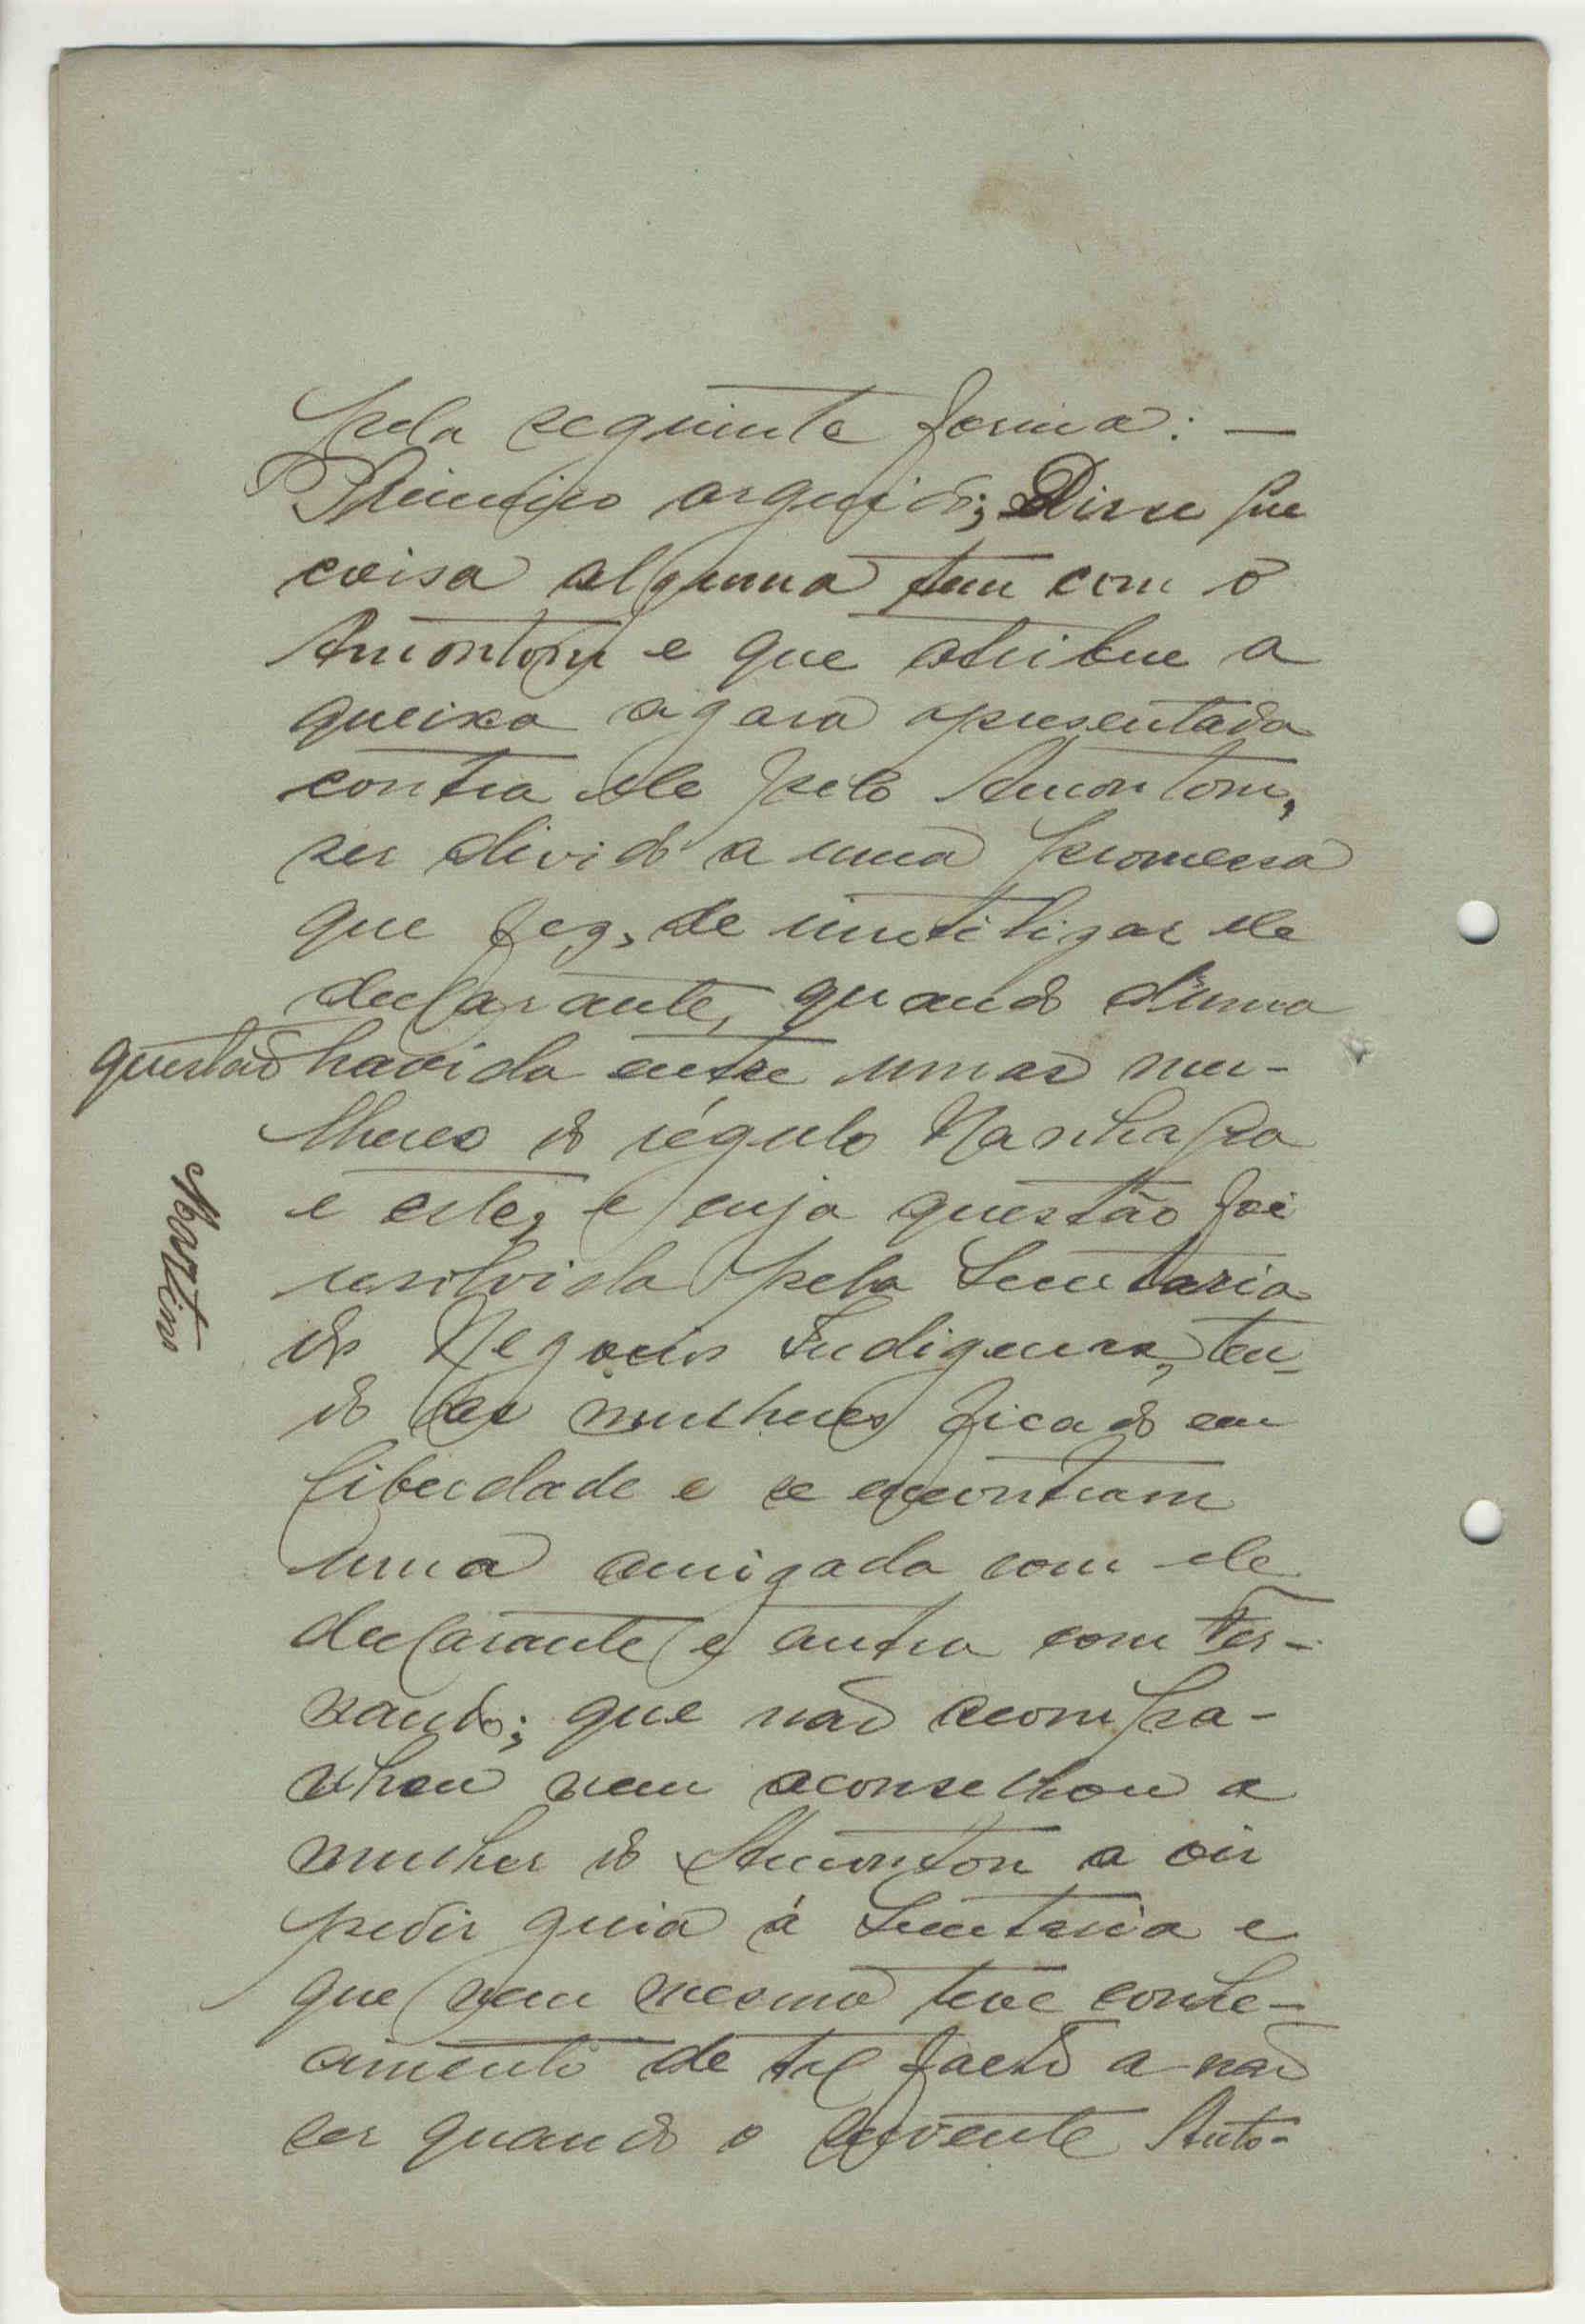 pela seguinte forma: —
Primeiro arguido; Disse que
coisa alguma tem com o
Amontom e que atribue a
queixa agora apresentada
contra ele pelo Amontom,
ser divido a uma promessa
que fez, de inutilizar ele
declarante, quando d'uma
questão havida entre umas mu-
lheres do régulo Manhapa
e este, e cuja questão foi
resolvida pela Secretaria
dos Negocios Indigenas, ten-
do as mulheres ficado em
liberdade e se encontram
uma amigada com ele
declarante e outra com Fer-
nando; que não acompa-
nhou nem aconselhou a
mulher do Amonton a vir
pedir guia á Secretaria e
que nem mesmo teve conhe-
cimento de tal facto a não
ser quando o servente Anto-
Martins